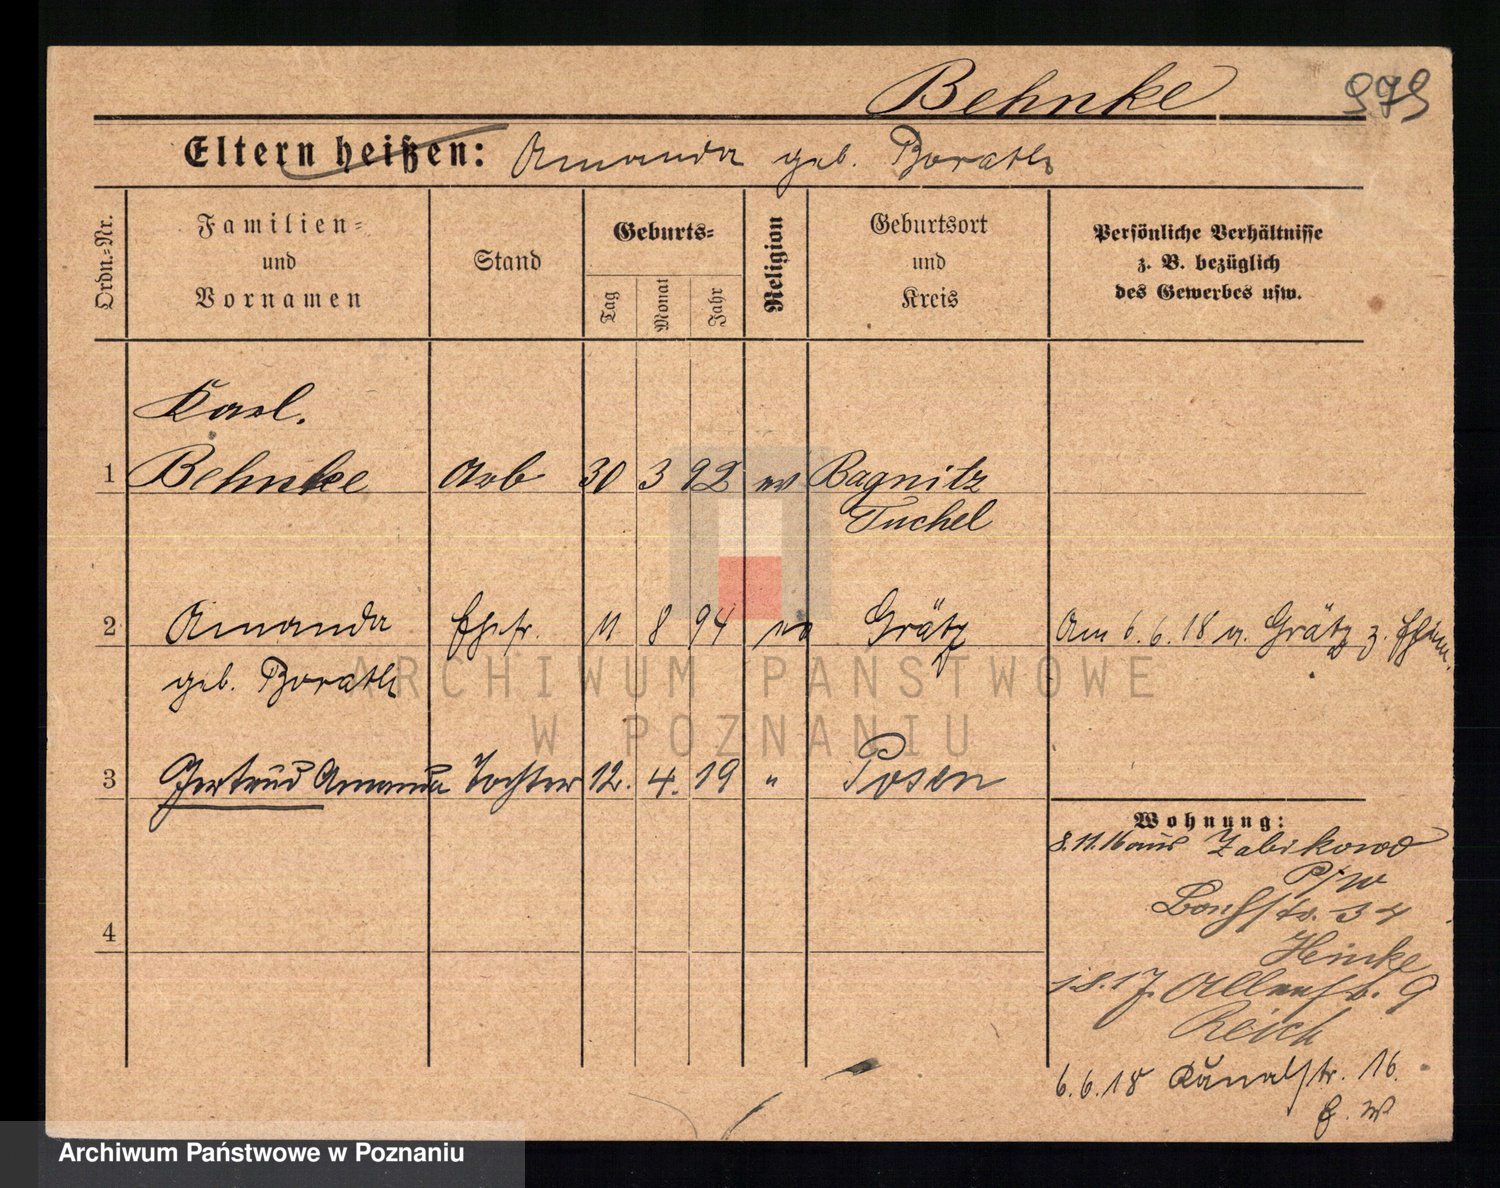 Behnke 979
Eltern heißen: Amanda geb. Borath
Ordn.-Nr.
Familien-
und
Vornamen
Stand
Geburts-
Tag
Monat
Jahr
Religion
Geburtsort
und
Kreis
Persönliche Verhältnisse
z. B. bezüglich
des Gewerbes usw.
Karl.
1 Behnke Arb 30 3 92 ev Bagnitz
Tuchel
2 Amanda Ehefr. 11 8 94 ev Grätz Am 6.6.18 v. Grätz z. Ehem.
geb. Borath
3 Gertrud Amanda Tochter 12. 4. 19 " Posen
4
Wohnung:
8.11.16 aus Zabikowo
P/W
34
Heinke
9
Reich
6.6.18 Kanalstr. 16.
E. W
ARCHIWUM PAŃSTWOWE
W POZNANIU
Archiwum Państwowe w Poznaniu